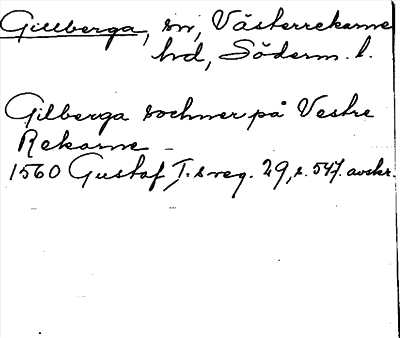 Gillberga, sn, Västerrekarne
hd, Söderm. l.
Gilberga sochner på Vestre
Rekarne
1560 Gustaf I:s reg. 29, s. 547. avskr.